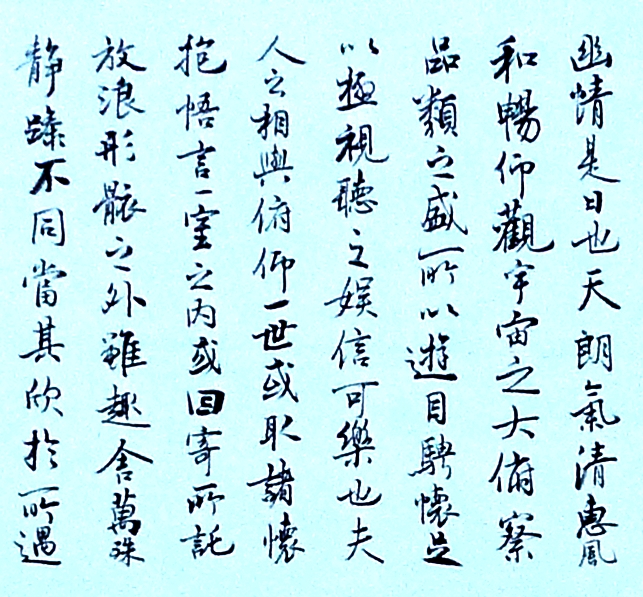 幽情是日也天朗氣清惠風
和暢仰觀宇宙之大俯察
品類之盛所以遊目騁懷足
以極視聽之娛信可樂也夫
人之相與俯仰一世或取諸懷
抱悟言一室之內或因寄所託
放浪形骸之外雖趣舍萬殊
静躁不同當其欣於所遇